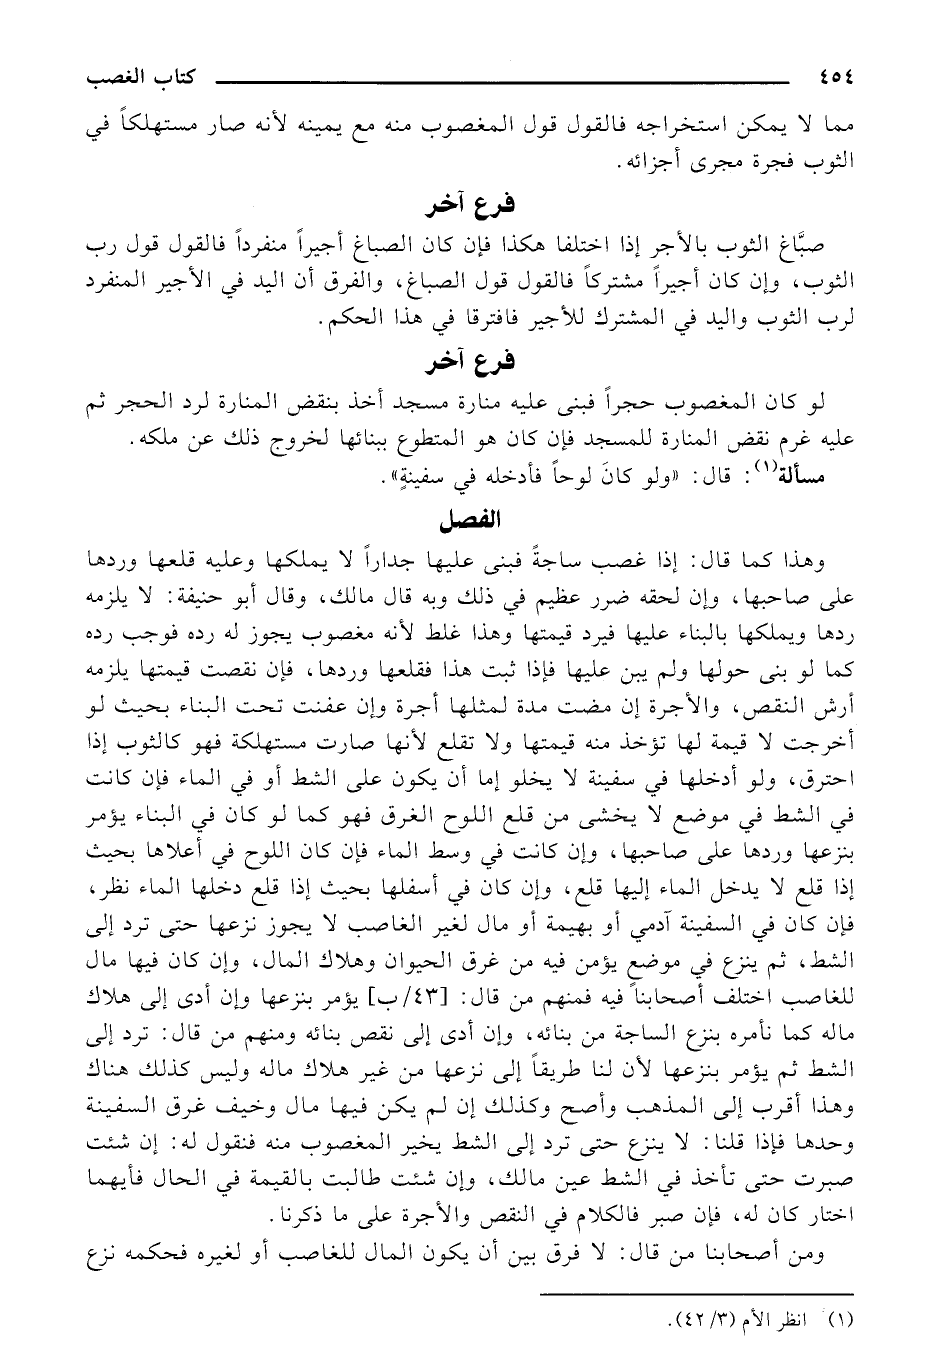 ٤٥٤ كتاب الغصب
مما لا يمكن استخراجه فالقول قول المغصوب منه مع يمينه لأنه صار مستهلكاً في
الثوب فجرة مجرى أجزائه.
فرع آخر
صبَّاغ الثوب بالأجر إذا اختلفا هكذا فإن كان الصباغ أجيراً منفرداً فالقول قول رب
الثوب، وإن كان أجيراً مشتركاً فالقول قول الصباغ، والفرق أن اليد في الأجير المنفرد
لرب الثوب واليد في المشترك للأجير فافترقا في هذا الحكم.
فرع آخر
لو كان المغصوب حجراً فبنى عليه منارة مسجد أخذ بنقض المنارة لرد الحجر ثم
عليه غرم نقض المنارة للمسجد فإن كان هو المتطوع ببنائها لخروج ذلك عن ملكه.
مسألة(١): قال: «ولو كانَ لوحاً فأدخله في سفينةٍ».
الفصل
وهذا كما قال: إذا غصب ساجةً فبنى عليها جداراً لا يملكها وعليه قلعها وردها
على صاحبها، وإن لحقه ضرر عظيم في ذلك وبه قال مالك، وقال أبو حنيفة: لا يلزمه
ردها ويملكها بالبناء عليها فيرد قيمتها وهذا غلط لأنه مغصوب يجوز له رده فوجب رده
كما لو بنى حولها ولم يبن عليها فإذا ثبت هذا فقلعها وردها، فإن نقصت قيمتها يلزمه
أرش النقص، والأجرة إن مضت مدة لمثلها أجرة وإن عفنت تحت البناء بحيث لو
أخرجت لا قيمة لها تؤخذ منه قيمتها ولا تقلع لأنها صارت مستهلكة فهو كالثوب إذا
احترق، ولو أدخلها في سفينة لا يخلو إما أن يكون على الشط أو في الماء فإن كانت
في الشط في موضع لا يخشى من قلع اللوح الغرق فهو كما لو كان في البناء يؤمر
بنزعها وردها على صاحبها، وإن كانت في وسط الماء فإن كان اللوح في أعلاها بحيث
إذا قلع لا يدخل الماء إليها قلع، وإن كان في أسفلها بحيث إذا قلع دخلها الماء نظر،
فإن كان في السفينة آدمي أو بهيمة أو مال لغير الغاصب لا يجوز نزعها حتى ترد إلى
الشط، ثم ينزع في موضع يؤمن فيه من غرق الحيوان وهلاك المال، وإن كان فيها مال
للغاصب اختلف أصحابنا فيه فمنهم من قال: [٤٣/ب] يؤمر بنزعها وإن أدى إلى هلاك
ماله كما نأمره بنزع الساجة من بنائه، وإن أدى إلى نقص بنائه ومنهم من قال: ترد إلى
الشط ثم يؤمر بنزعها لأن لنا طريقاً إلى نزعها من غير هلاك ماله وليس كذلك هناك
وهذا أقرب إلى المذهب وأصح وكذلك إن لم يكن فيها مال وخيف غرق السفينة
وحدها فإذا قلنا: لا ينزع حتى ترد إلى الشط يخير المغصوب منه فنقول له: إن شئت
صبرت حتى تأخذ في الشط عين مالك، وإن شئت طالبت بالقيمة في الحال فأيهما
اختار كان له، فإن صبر فالكلام في النقص والأجرة على ما ذكرنا.
ومن أصحابنا من قال: لا فرق بين أن يكون المال للغاصب أو لغيره فحكمه نزع
(١) انظر الأم (٣/ ٤٢).